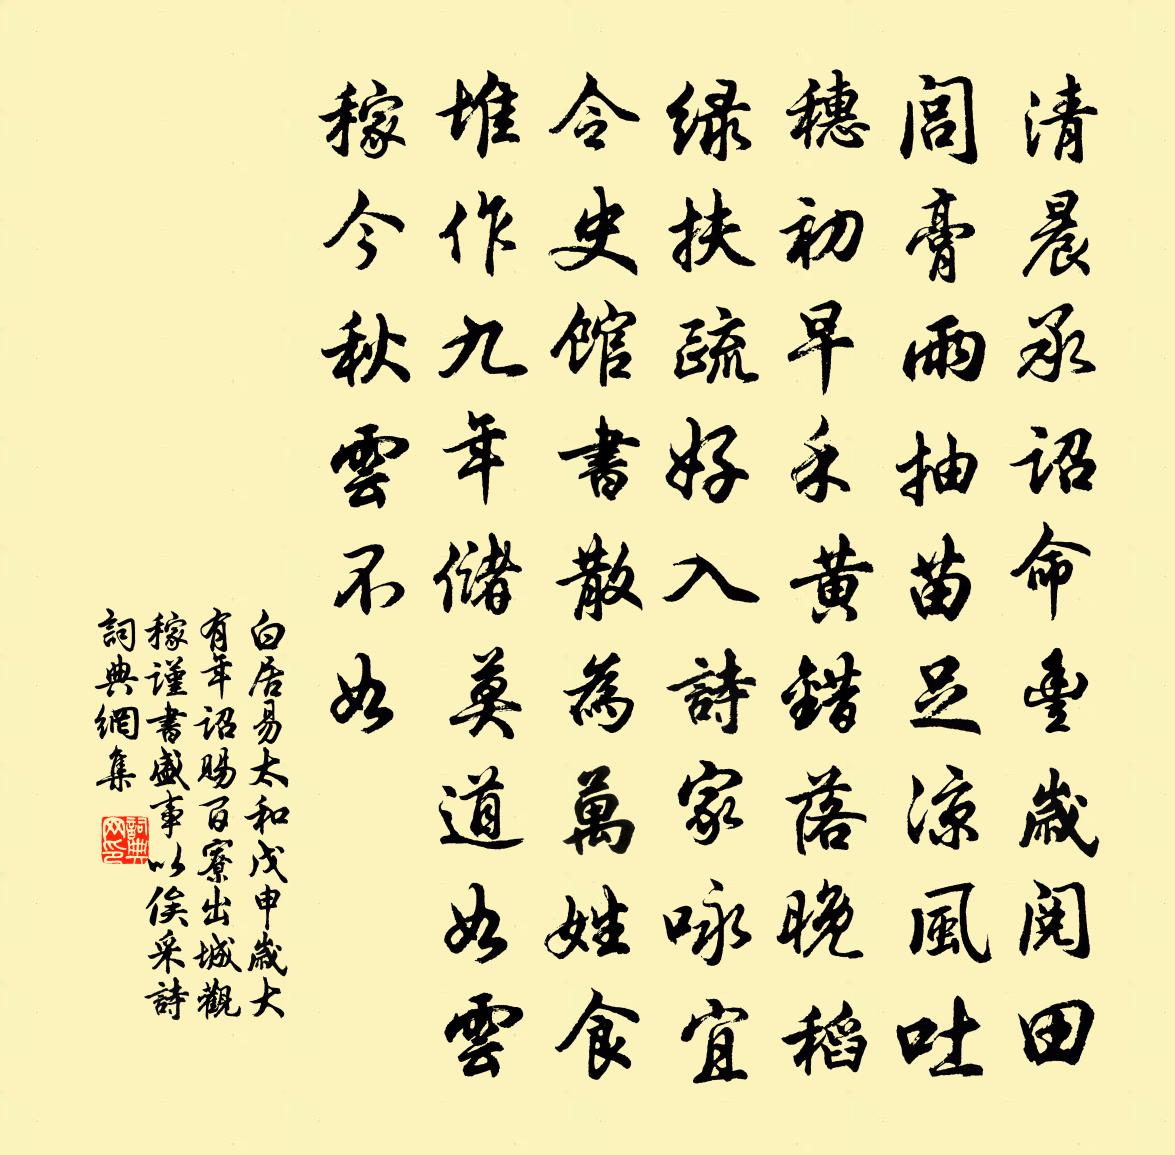 清晨承詔命豐歲閱田
閭膏雨抽苗足涼風吐
穗初早禾黃錯落晚稻
綠扶疏好入詩家咏宜
令史館書散為萬姓食
堆作九年儲莫道如雲
稼今秋雲不如
白居易太和戊申歲大
有年詔賜百寮出城觀
稼謹書盛事以俟采詩
詞典網集
詞典
網印